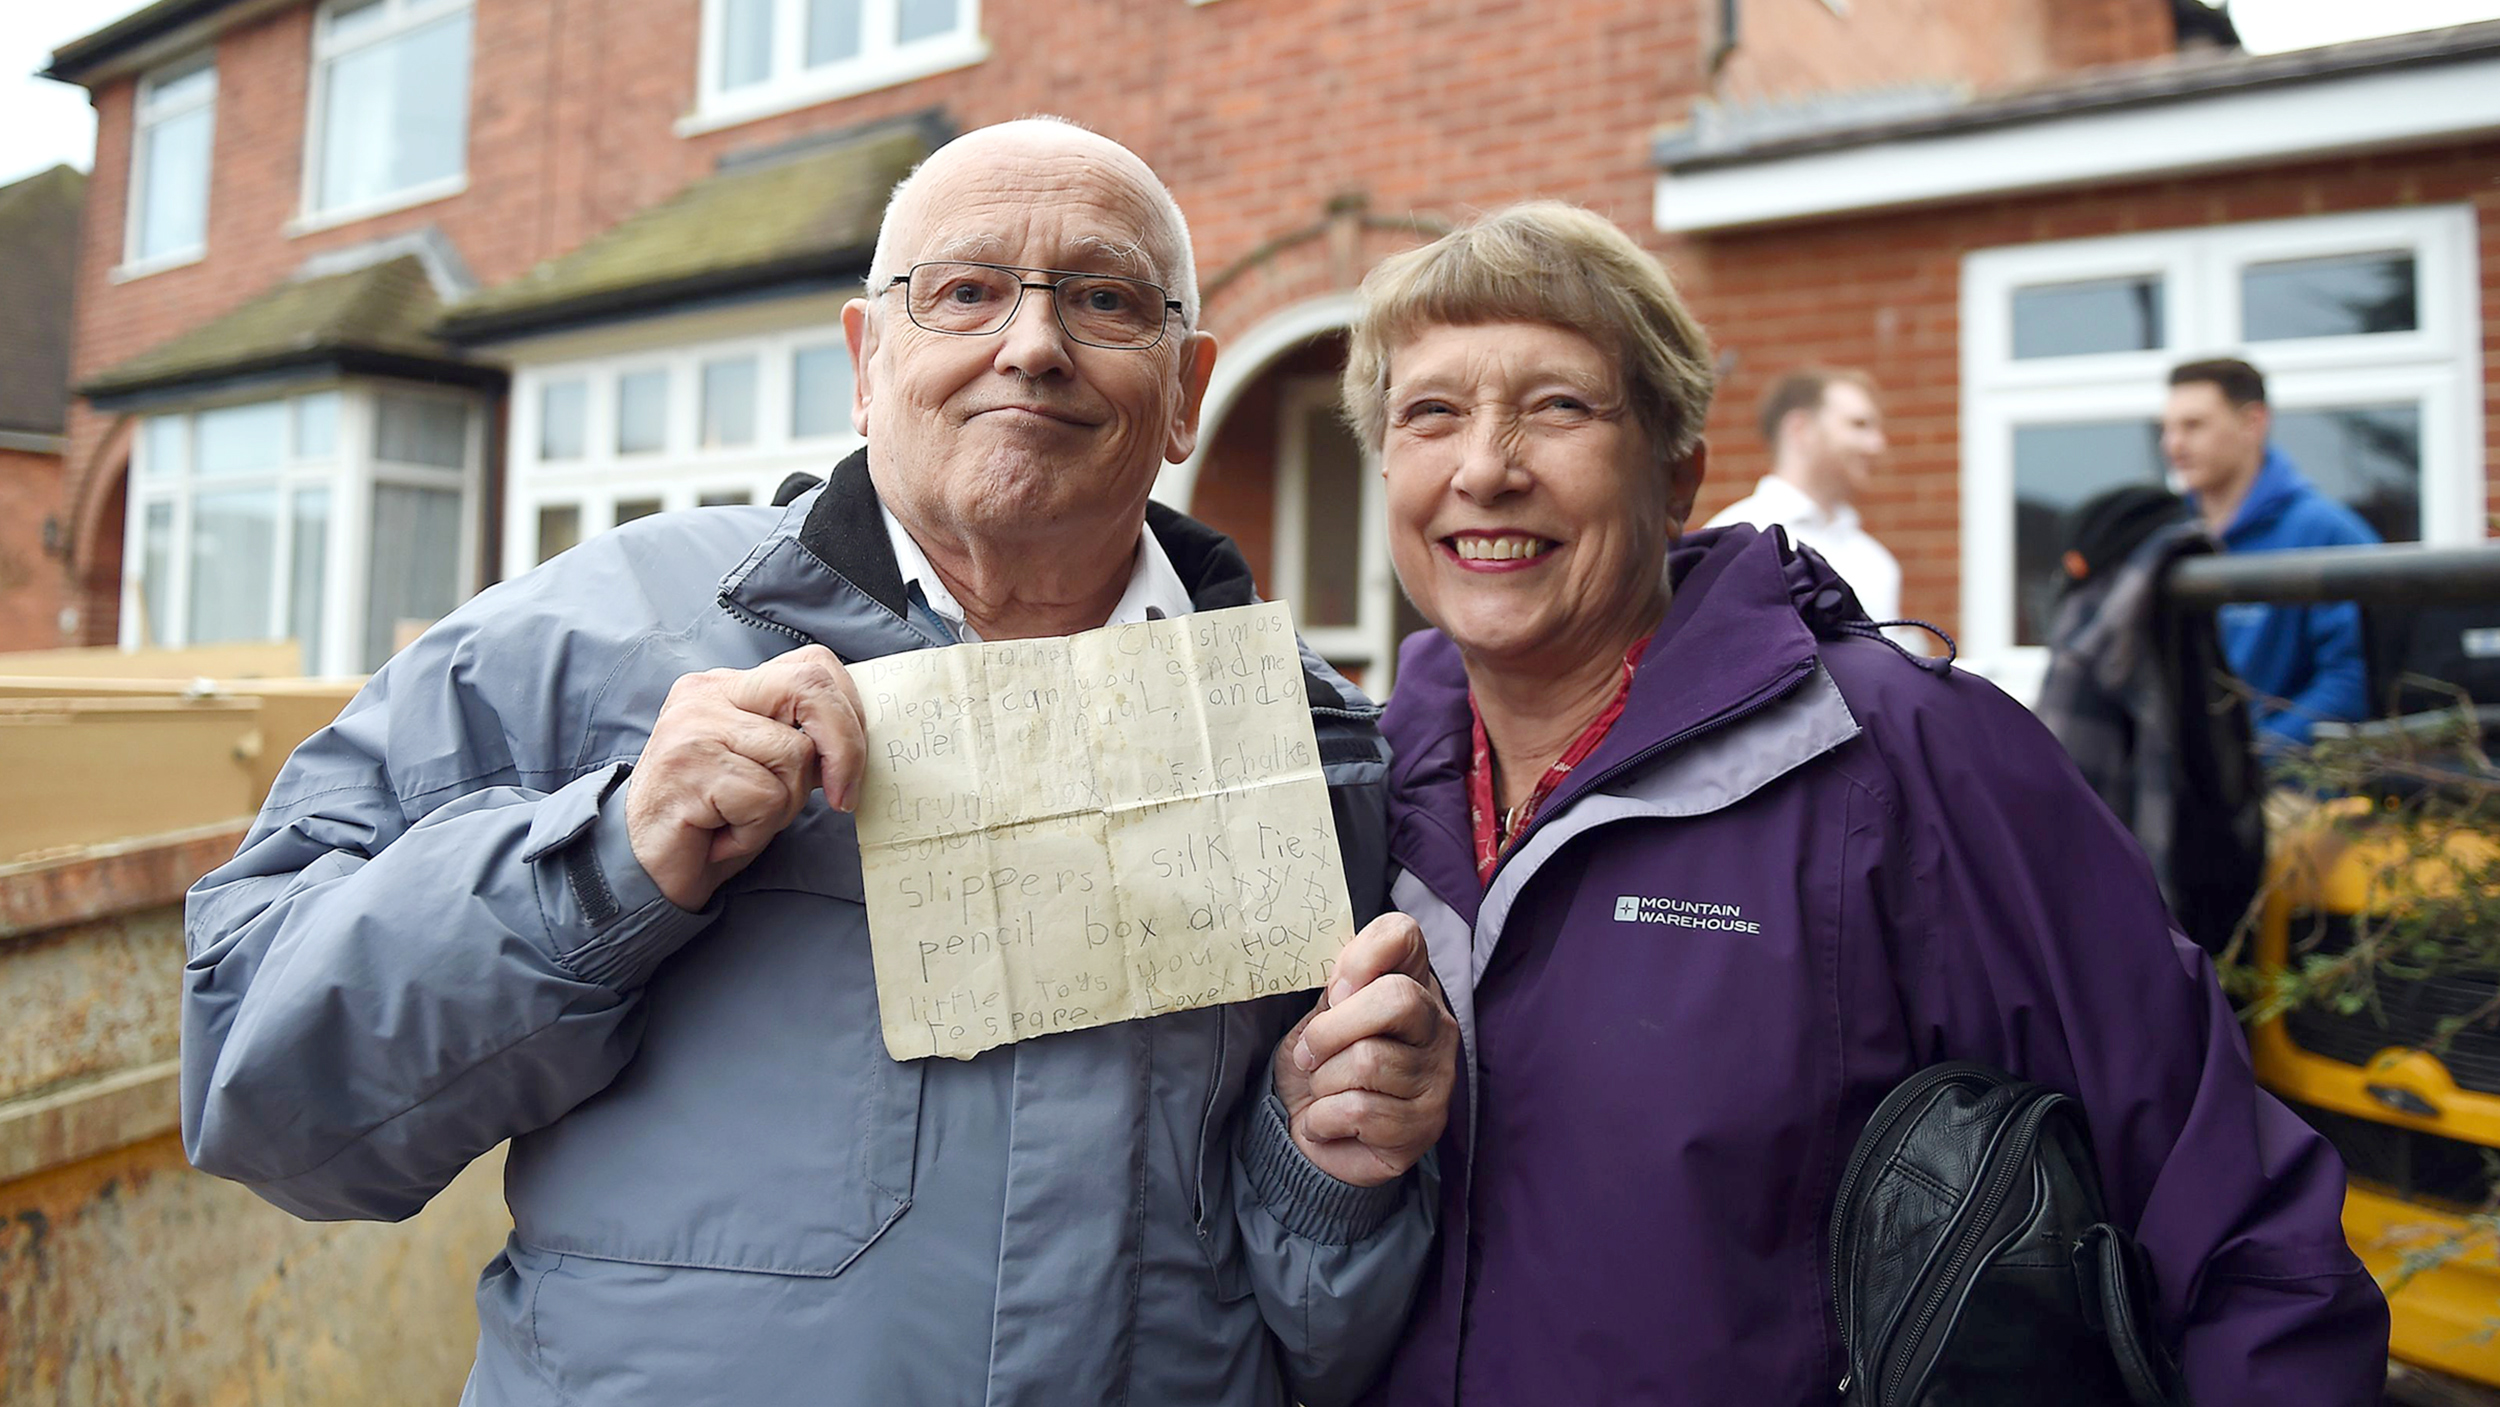 Dear Father Christmas
Please can you send me
Ruper Annual, and a
drum box of chalks
Soldiers and indians
slippers silk tie x
x x x y x x
pencil box any x x
little Toys you Have
x x x
te spare. Love David
MOUNTAIN
WAREHOUSE